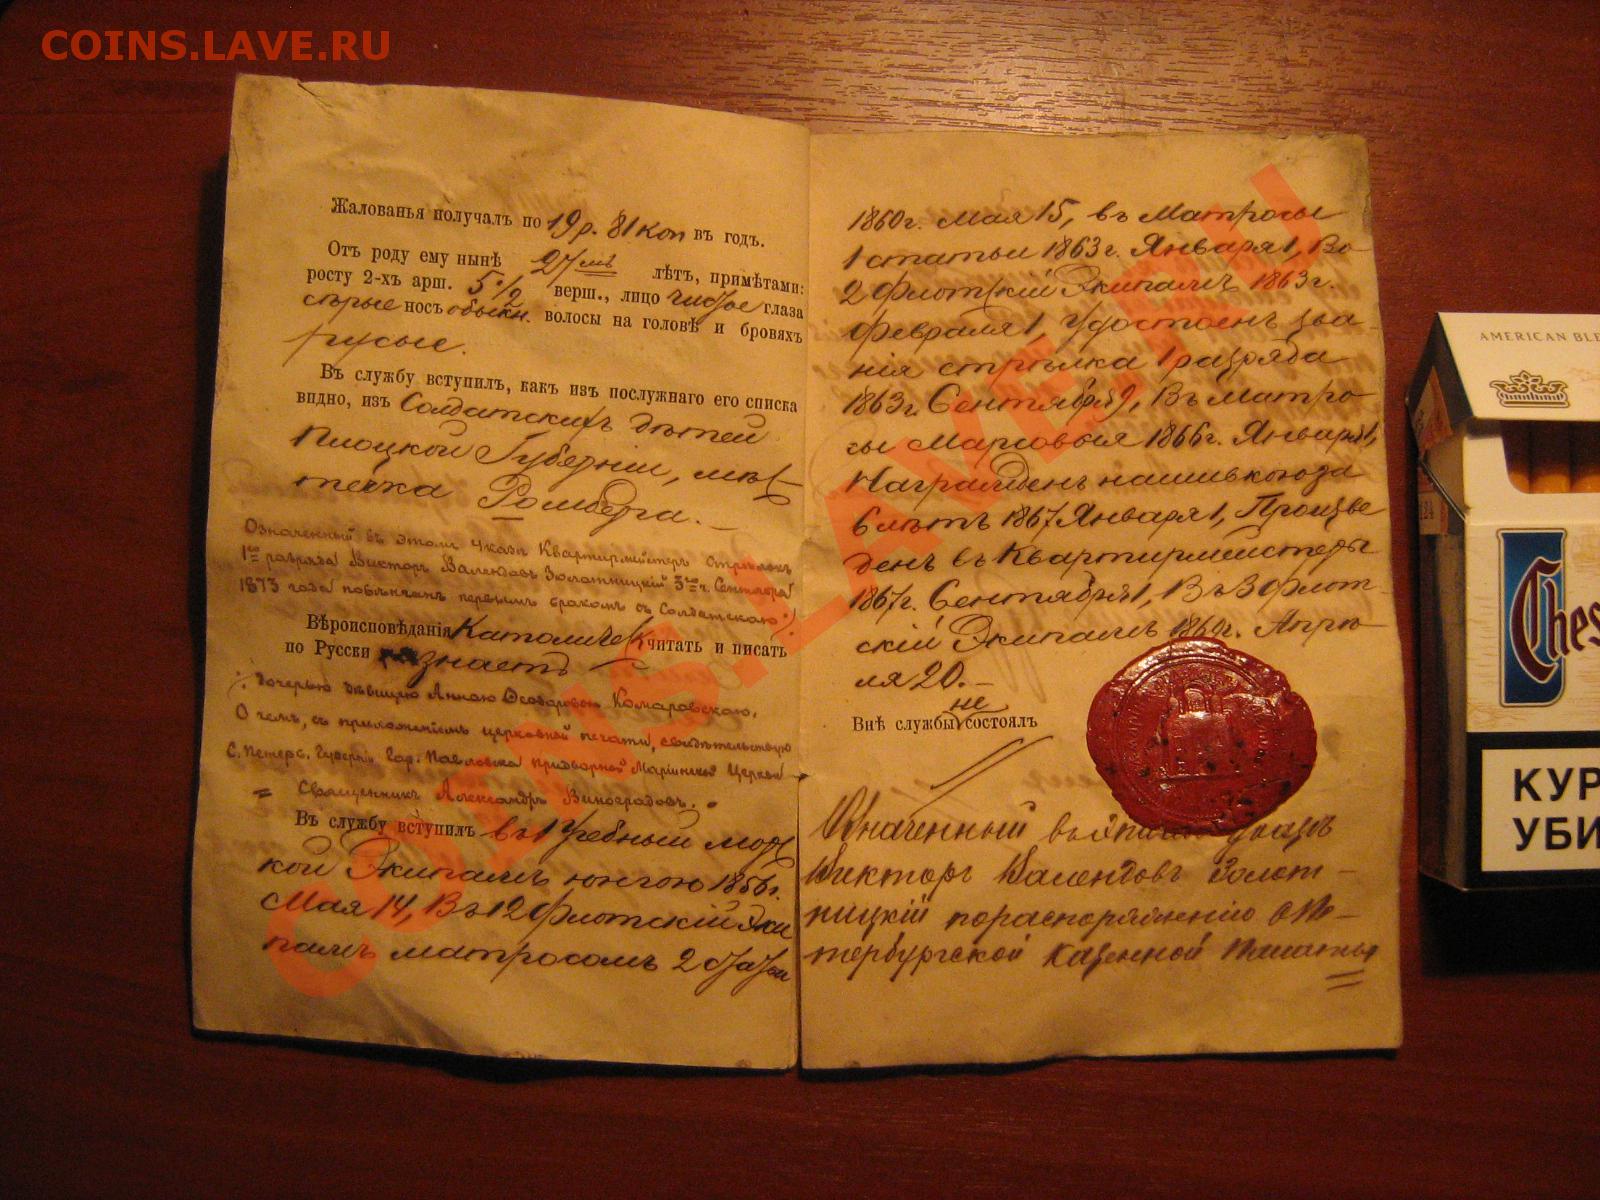 COINS.LAVE.RU
Жалованья получалъ по 19 р. 81 коп въ годъ.
Отъ роду ему нынѣ 27 мь лѣтъ, примѣтами:
росту 2-хъ арш. 5 1/2 верш., лицо чистое глаза
сѣрые носъ обыкн. волосы на головѣ и бровяхъ
русые.
Въ службу вступилъ, какъ изъ послужнаго его списка
видно, изъ Солдатскихъ дѣтей
Плоцкой Губерніи, мѣс-
течка Ромберга.
Означенный въ этомъ Указѣ Квартирмистеръ Стрѣлокъ
1го разряда Викторъ Валендовъ Золотницкій 3го ч. Сентября
1873 года повѣнчанъ первымъ бракомъ съ Солдатскою
Вѣроисповѣданія Католическ читать и писать
по Русски знаетъ
дочерью дѣвицею Анною Ѳеодоровою Комаровскою.
О чемъ, съ приложеніемъ церковной печати, свидѣтельствую
С. Петерб. Губерніи Гор. Павловска придворной Маріинской Церкви
Священникъ Александръ Виноградовъ.
Въ службу вступилъ въ 1 Учебный мор
кой Экипажъ юнгою 1856 г.
Мая 14, Въ 12 Флотскій Эки
пажъ матросомъ 2 статьи
1860 г. Мая 15, въ Матросы
1 статьи 1863 г. Января 1, Во
2 Флотскій Экипажъ 1863 г.
Февраля 1, Удостоенъ зва-
нія стрѣлка 1 разряда
1863 г. Сентября 9, Въ Матро-
сы Марсовые 1866 г. Января 1,
Награжденъ нашивкою за
6 лѣтъ 1867 Января 1, Произве
денъ въ Квартирмейстеры
1867 г. Сентября 1, Въ 3 Флот-
скій Экипажъ Апрѣ-
ля 20.
не
Внѣ службы состоялъ
Означенный въ Указѣ
Викторъ Валендовъ Золот-
ницкій по распоряженію С Пе-
тербургской Казенной Палаты
COINS.LAVE.RU
AMERICAN BLE
Ches
КУР
УБИ